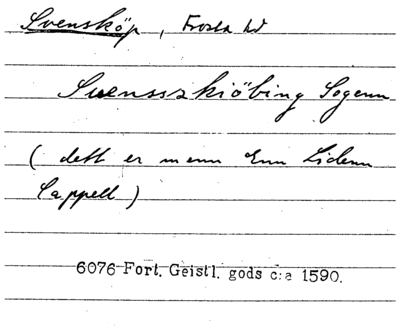 Svensköp, Frosta hd
Suensszkiöbing Sogenn
( dett er menn Enn Lidenn
Cappell )
6076 Fort. Geistl. gods c:a 1590.